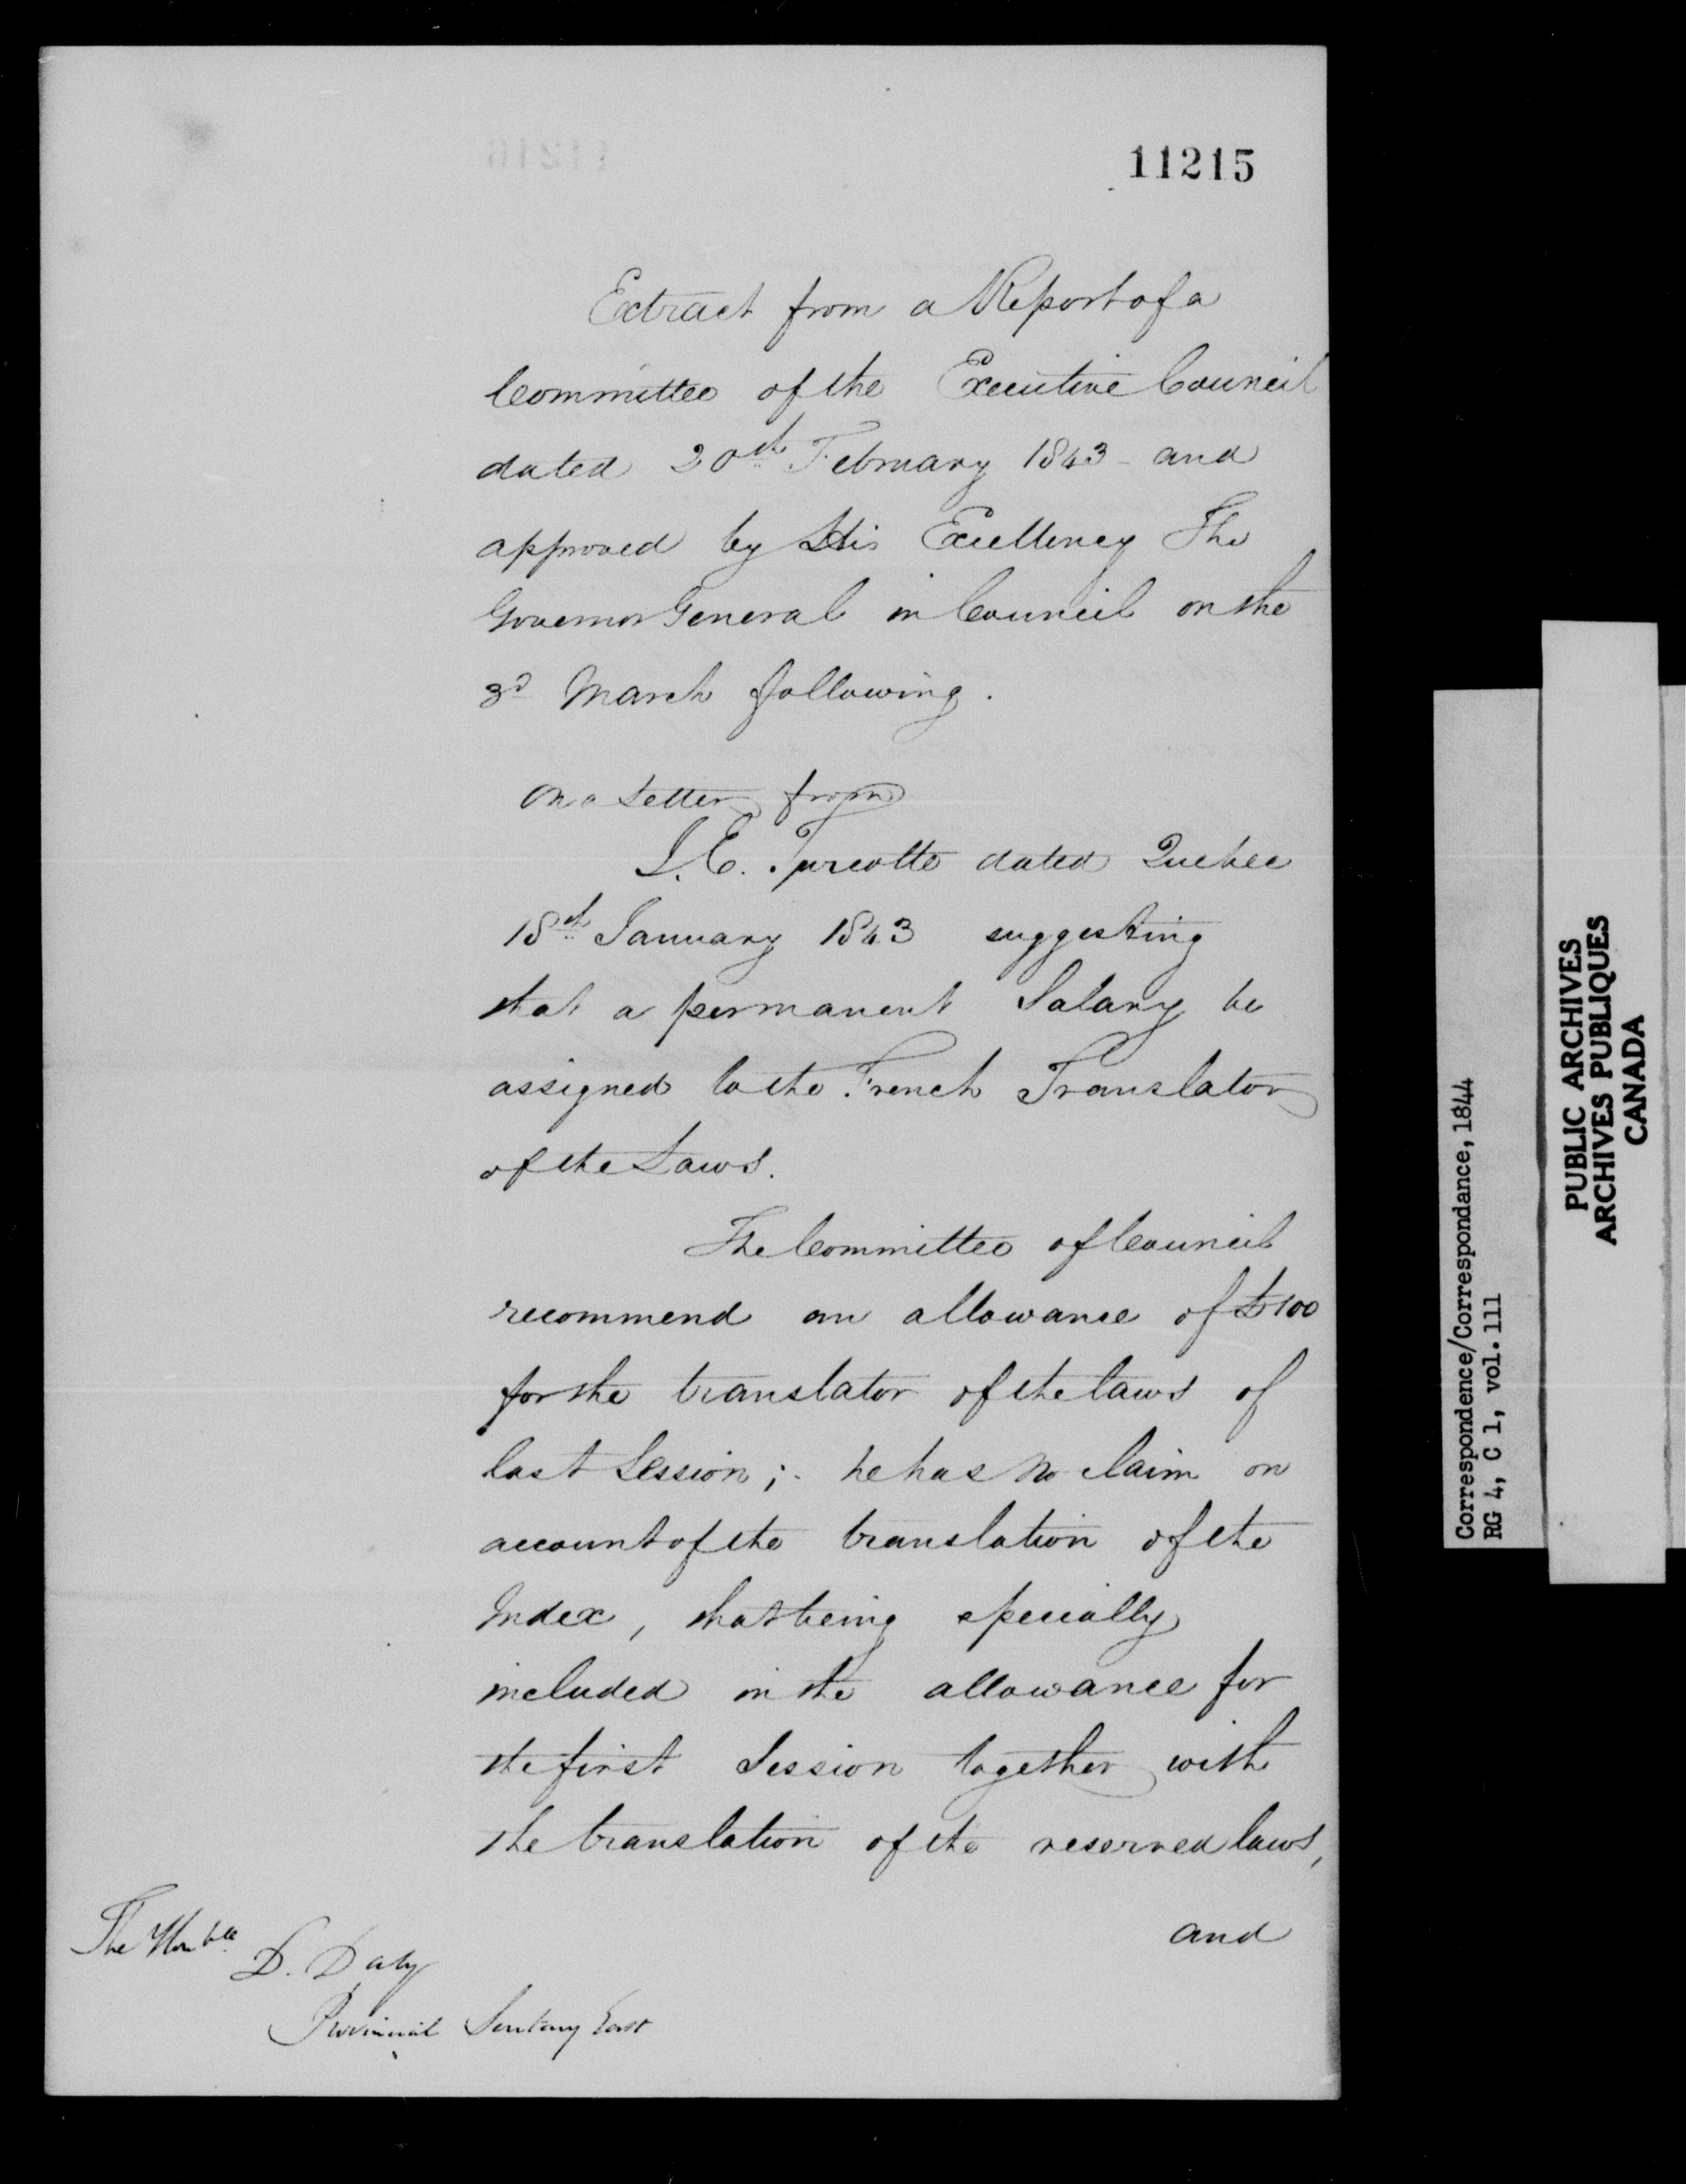 11215
Extract from a Report of a
Committee of the Executive Council
dated 20th February 1843 - and
approved by His Excellency The
Governor General in Council on the
3d March following.
On a Letter from
J. E. Turcotte dated Quebec
18th January 1843 suggesting
that a permanent Salary be
assigned to the French Translator
of the Laws.
The Committee of Council
recommend an allowance of £100
for the translator of the laws of
last Session; - he has no claim on
account of the translation of the
Index, that being specially
included in the allowance for
the first Session together with
the translation of the reserved laws,
and
The Honble
D. Daly
Provincial Secretary East
Correspondence/Correspondance, 1844
RG 4, C 1, vol. 111
PUBLIC ARCHIVES
ARCHIVES PUBLIQUES
CANADA